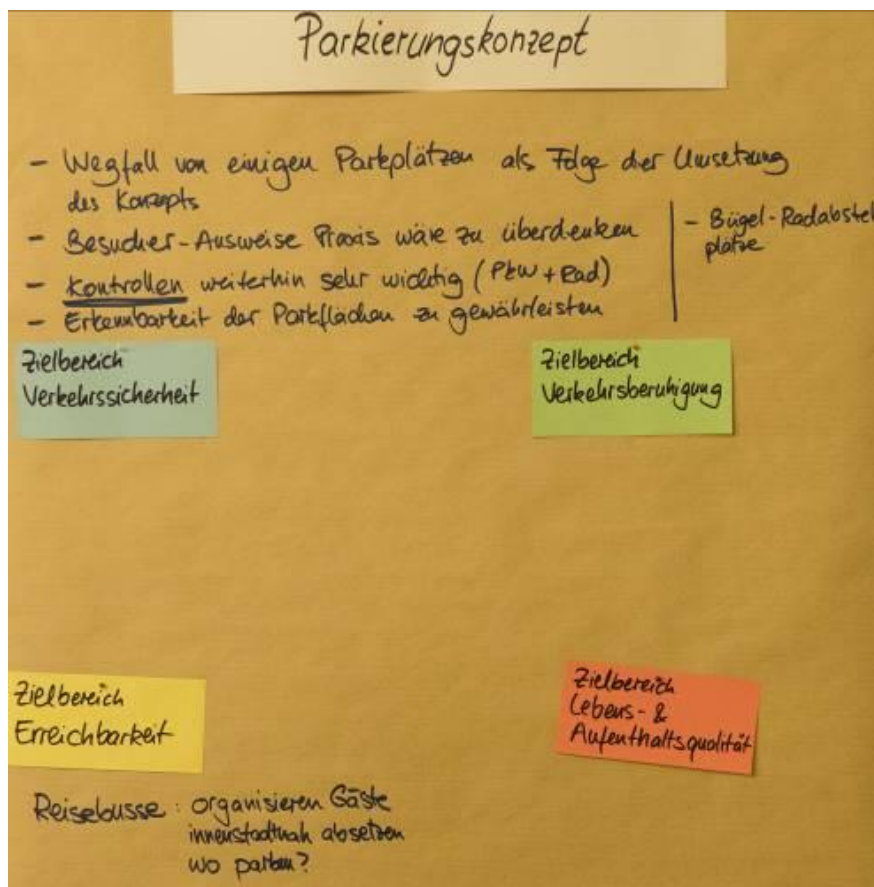 Parkierungskonzept
- Wegfall von einigen Parkplätzen als Folge der Umsetzung
des Konzepts
- Besucher-Ausweise Praxis wäre zu überdenken
- Kontrollen weiterhin sehr wichtig (PKW + Rad)
- Erkennbarkeit der Parkflächen zu gewährleisten
- Bügel-Radabstel
plätze
Zielbereich
Verkehrssicherheit
Zielbereich
Verkehrsberuhigung
Zielbereich
Erreichbarkeit
Zielbereich
Lebens- &
Aufenthaltsqualität
Reisebusse : organisieren Gäste
innenstadtnah absetzen
wo parken?